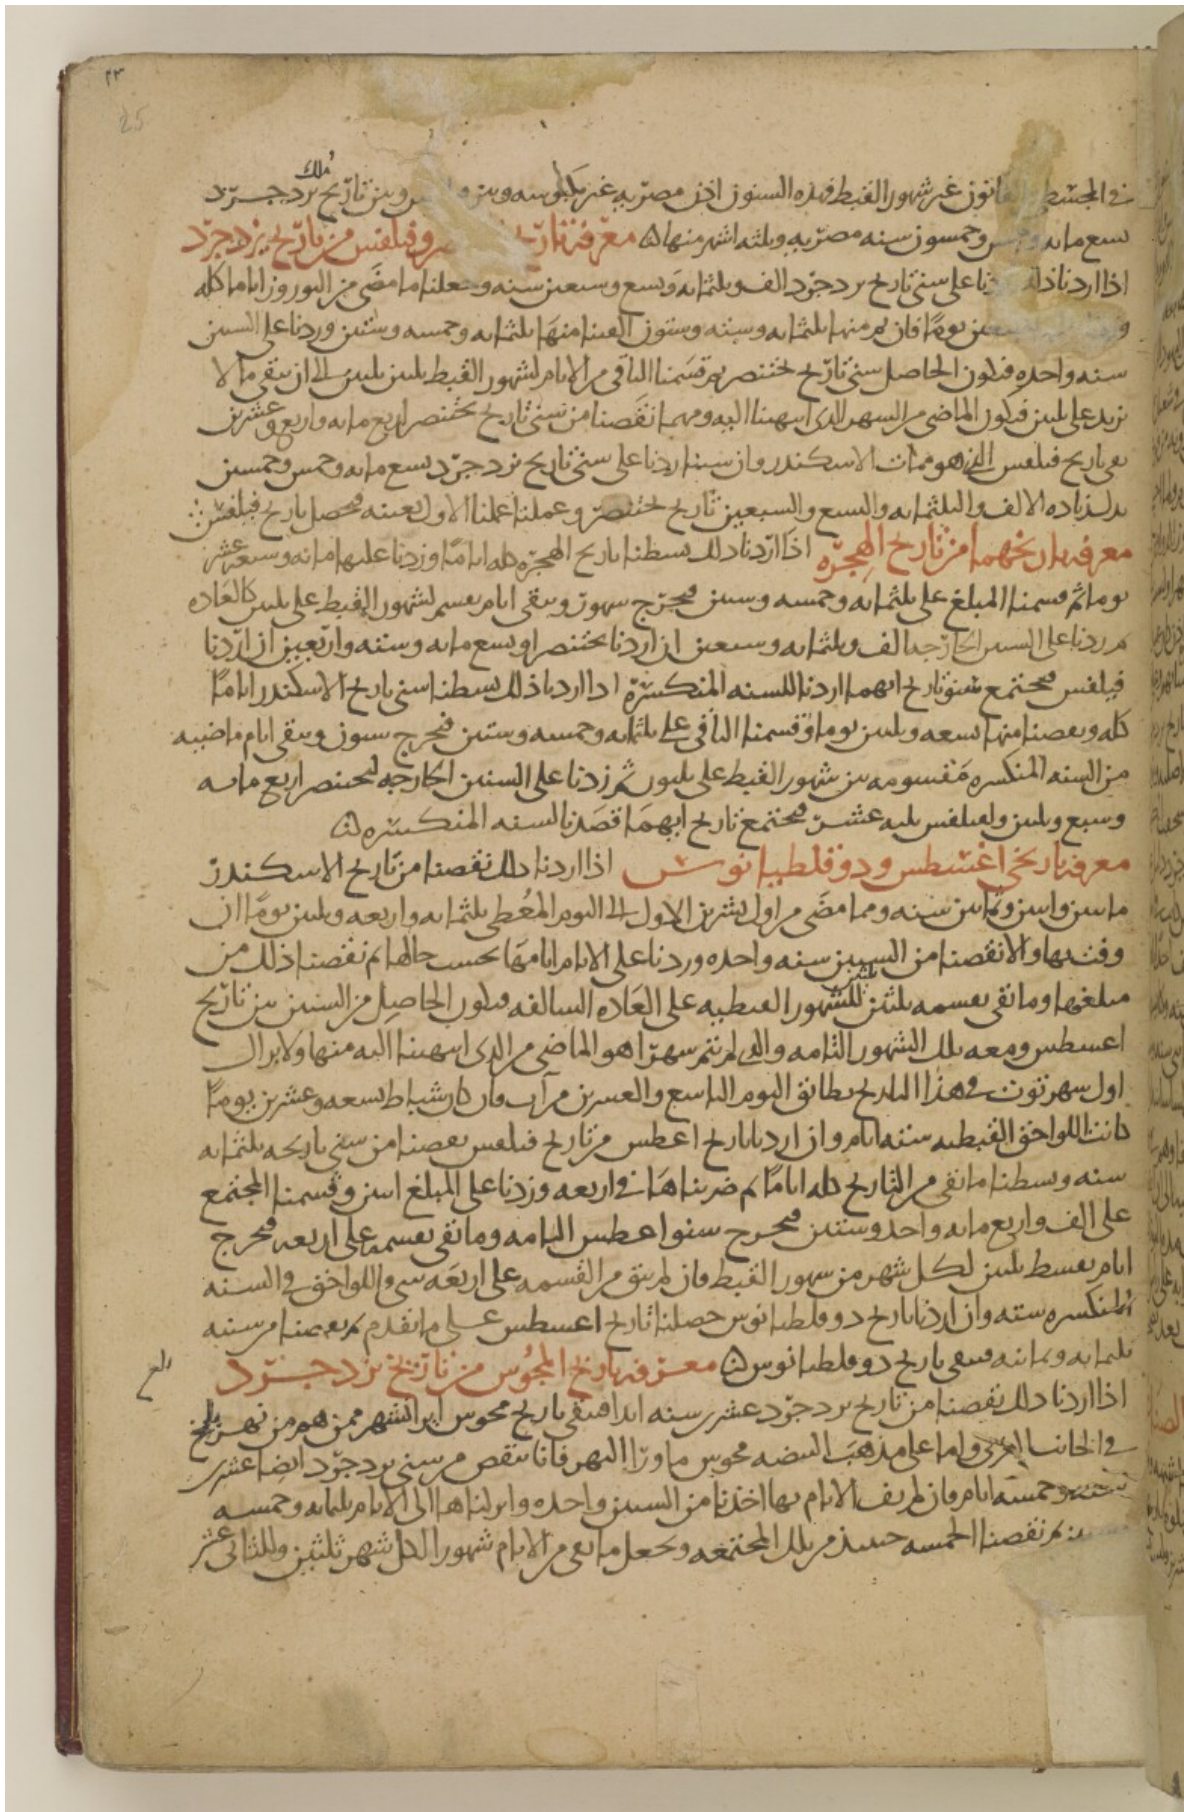 ٢٣
25
في المجسطي القانون غير شهور القبط فهذه السنون اذن مصرية غير مكبوسه وبين وبين تاريخ ملك يزدجرد
تسع مائه وخمس وخمسون سنه مصريه وثلثه اشهر منها معرفة تاريخ وفيلفس من تاريخ يزدجرد
اذا اردنا ذلك زدنا على سني تاريخ يزدجرد الف وثلثمائه وتسع وسبعين سنه وجعلنا ما مضى من النوروز اياما كله
تسعين يوما فان تم منها ثلثمائه وسته وستون القينا منها ثلثمائه وخمسه وستين وزدنا على السنين
سنه واحده فيكون الحاصل سني تاريخ بختنصر ثم قسمنا الباقي من الايام لشهور القبط ثلثين ثلثين الى ان يبقى ما لا
يزيد على ثلثين فيكون الماضي من الشهر الذي انتهينا اليه ومهما نقصنا من سني تاريخ بختنصر اربع مائه واربع وعشرين
بقي تاريخ فيلفس الذي هو ممات الاسكندر وان شينا زدنا على سني تاريخ يزدجرد تسع مائه وخمس وخمسين
بدل زياده الالف والثلثمائه والتسع والسبعين لتاريخ بختنصر وعملنا عملنا الاول بعينه فيحصل تاريخ فيلفس
معرفة تاريخهما من تاريخ الهجرة اذا اردنا ذلك بسطنا تاريخ الهجرة كله اياما وزدنا عليها مائه وسبعه عشر
يوما ثم قسمنا المبلغ على ثلثمائه وخمسه وستين فيخرج سنون ويبقى ايام يقسم لشهور القبط على ثلثين كالعاده
ثم زدنا على السنين الخارجه الف وثلثمائه وسبعين ان اردنا بختنصر او تسع مائه وسته واربعين ان اردنا
فيلفس فيجتمع سنو تاريخ ايهما اردنا للسنه المنكسرة اذا اردنا ذلك بسطنا سني تاريخ الاسكندر اياما
كله ونقصنا منها تسعه وثلثين يوما وقسمنا الباقي على ثلثمائه وخمسه وستين فيخرج سنون ويبقى ايام ماضيه
من السنه المنكسره مقسومه بين شهور القبط على ثلثون ثم زدنا على السنين الخارجه لبختنصر اربع مائه
وسبع وثلثين ولفيلفس ثلثه عشر فيجتمع تاريخ ايهما قصدنا لسنه المنكسره
معرفة تاريخي اغسطس ودوقلطيانوس اذا اردنا ذلك نقصنا من تاريخ الاسكندر
مائتين واثنين وثمانين سنه ومما مضى من اول تشرين الاول الى اليوم المعطى ثلثمائه واربعه وثلثين يوما ان
وفت بها والا نقصنا من السنين سنه واحده وزدنا على الايام ايامها بحسب حالها ثم نقصنا ذلك من
مبلغها وما بقي يقسمه ثلثين ثلثين للشهور القبطيه على العاده السالفه فيكون الحاصل من السنين من تاريخ
اغسطس ومعه تلك الشهور التامه والذي لم يتم شهرا هو الماضي من الذي انتهينا اليه منها ولا يزال
اول شهر توت في هذا التاريخ يطابق اليوم التاسع والعشرين من آب وان كان شباط تسعه وعشرين يوما
كانت اللواحق القبطيه سته ايام وان اردنا تاريخ اغطس من تاريخ فيلفس نقصنا من سني تاريخه ثلثمائه
سنه وبسطنا ما بقي من التاريخ كله اياما ثم ضربناها في اربعه وزدنا على المبلغ اثنين وقسمنا المجتمع
على الف واربع مائه واحد وستين فيخرج سنو اغطس التامه وما بقي نقسمه على اربعه فيخرج
ايام يقسط ثلثين لكل شهر من شهور القبط فان لم يبق من القسمه على اربعه شي واللواحق في السنه
المنكسره سته وان اردنا تاريخ دوقلطيانوس حصلنا تاريخ اغسطس على ما تقدم ثم نقصنا من سنه
ثلثمائه وثمانيه فيبقى تاريخ دوقلطيانوس معرفة تاريخ المجوس من تاريخ يزدجرد
اذا اردنا ذلك نقصنا من تاريخ يزدجرد عشرين سنه ابدا فيبقى تاريخ مجوس ايرانشهر ممن هم من نهر بلخ
في الجانب الغربي واما على مذهب المبيضه مجوس ما ورا النهر فانا ننقص من سني يزدجرد ايضا عشرين
سنه وخمسه ايام فان لم يف الايام بها اخذنا من السنين واحده وانزلناها الى الايام ثلثمائه وخمسه
وستين ثم نقصنا الخمسه حينئذ من تلك المجتمعه ونجعل ما بقي من الايام شهورا لكل شهر ثلثين وللثاني عشر